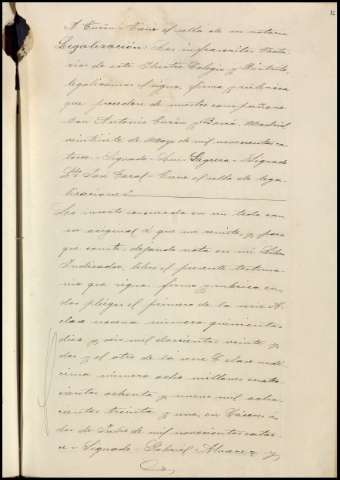 A. Turón = Tiene el sello de su notaría
Legalización = Los infrascritos Nota-
rios de este Ilustre Colegio y Distrito,
legalizamos el signo, firma y rúbrica
que preceden de nuestro compañero
Don Antonio Turón y Boscá. Madrid
veintisiete de Mayo de mil novecientos ca-
torce = Signado =
Tiene el sello de lega-
lizaciones =
Lo inserto concuerda en un todo con
su original a que me remito, y para
que conste, dejando nota en mi Libro
Indicador, libro el presente testimo-
nio que signo, firmo y rubrico en
dos pliegos el primero de la serie A.
clase novena número quinientos
diez y seis mil doscientos veinte y
dos y el otro de la serie C clase undé-
cima número ocho millones cuatro-
cientos ochenta y nueve mil ocho-
cientos treinta y uno, en Cáceres a
dos de Julio de mil novecientos cator-
ce = Signado = Gabriel Alvarez y